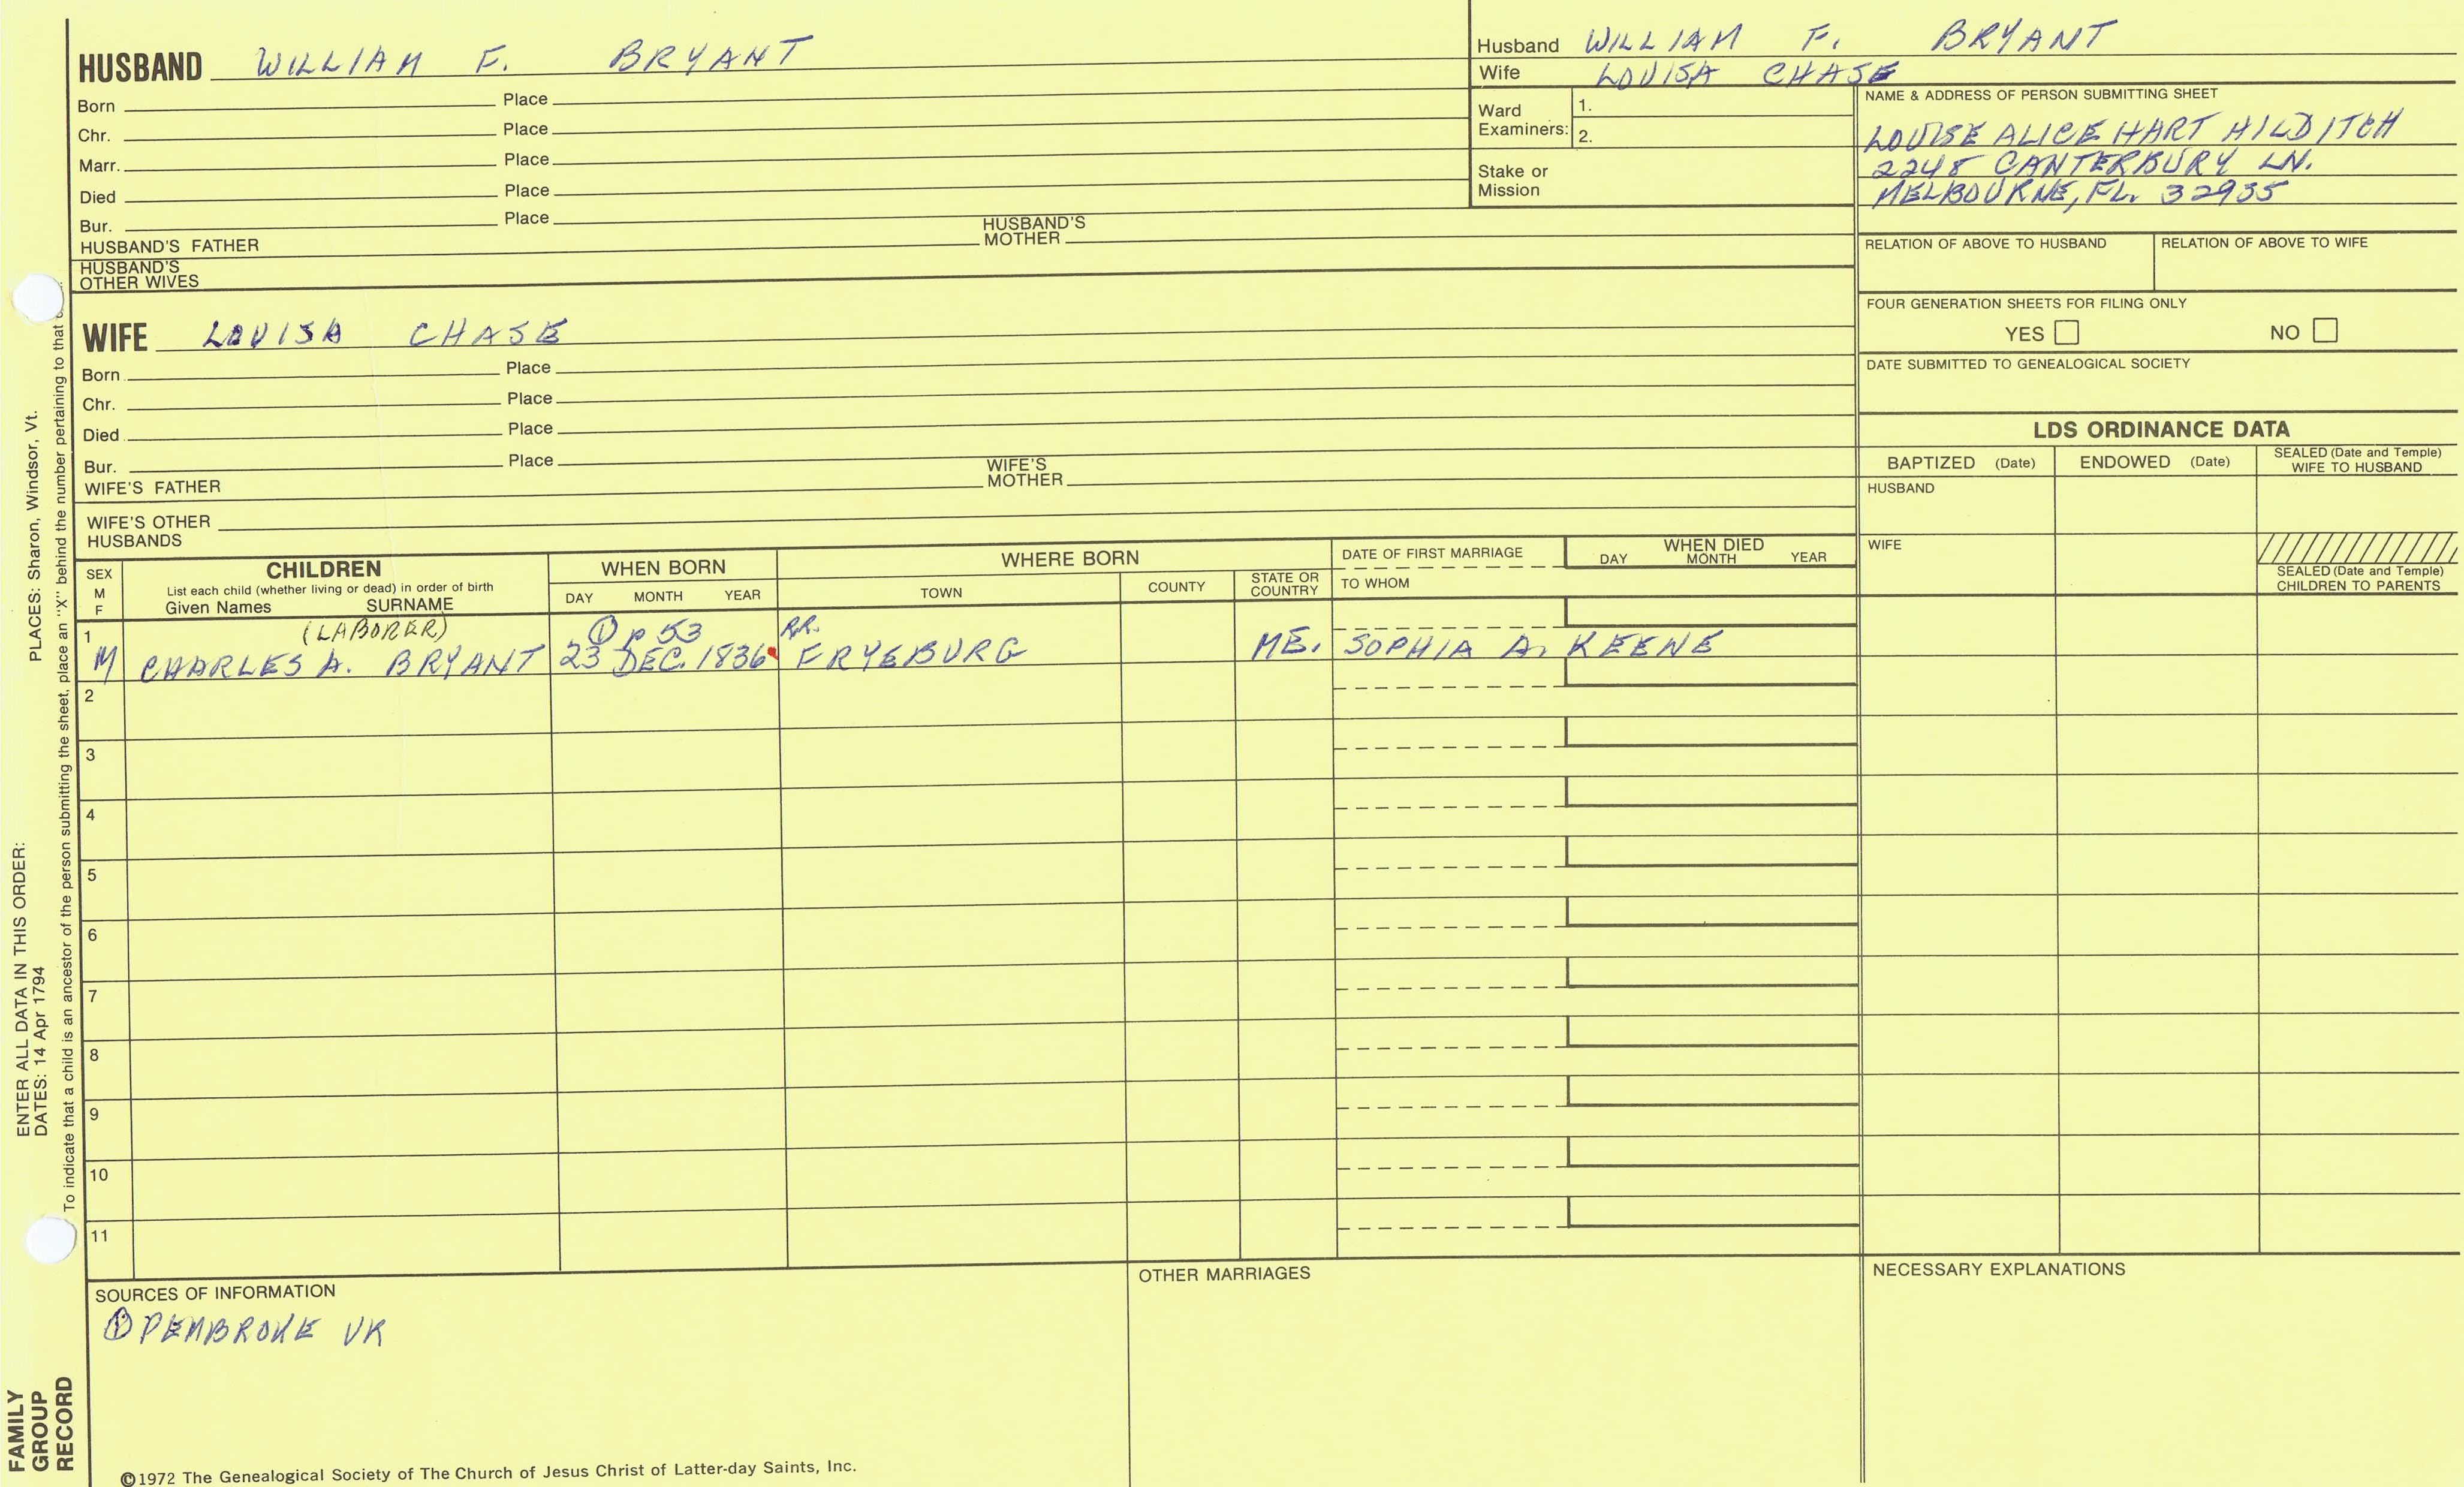 HUSBAND WILLIAM F. BRYANT
Born Place
Chr. Place
Marr. Place
Died Place
Bur. Place
HUSBAND'S FATHER HUSBAND'S MOTHER
HUSBAND'S OTHER WIVES
WIFE LOUISA CHASE
Born Place
Chr. Place
Died Place
Bur. Place
WIFE'S FATHER WIFE'S MOTHER
WIFE'S OTHER HUSBANDS
Husband WILLIAM F. BRYANT
Wife LOUISA CHASE
Ward Examiners: 1.
2.
Stake or Mission
NAME & ADDRESS OF PERSON SUBMITTING SHEET
LOUISE ALICE HART HILDITCH
2248 CANTERBURY LN.
MELBOURNE, FL. 32935
RELATION OF ABOVE TO HUSBAND RELATION OF ABOVE TO WIFE
FOUR GENERATION SHEETS FOR FILING ONLY
YES NO
DATE SUBMITTED TO GENEALOGICAL SOCIETY
LDS ORDINANCE DATA
BAPTIZED (Date) ENDOWED (Date) SEALED (Date and Temple) WIFE TO HUSBAND
HUSBAND
WIFE
SEALED (Date and Temple) CHILDREN TO PARENTS
SEX M F
CHILDREN
List each child (whether living or dead) in order of birth
Given Names SURNAME
WHEN BORN
DAY MONTH YEAR
WHERE BORN
TOWN COUNTY STATE OR COUNTRY
DATE OF FIRST MARRIAGE
TO WHOM
WHEN DIED
DAY MONTH YEAR
1 (LABORER) ① P 53 P.R.
M CHARLES A. BRYANT 23 DEC. 1836 FRYEBURG ME. SOPHIA A. KEENE
2
3
4
5
6
7
8
9
10
11
SOURCES OF INFORMATION
① PEMBROKE VR
OTHER MARRIAGES
NECESSARY EXPLANATIONS
©1972 The Genealogical Society of The Church of Jesus Christ of Latter-day Saints, Inc.
FAMILY GROUP RECORD
ENTER ALL DATA IN THIS ORDER:
DATES: 14 Apr 1794
PLACES: Sharon, Windsor, Vt.
To indicate that a child is an ancestor of the person submitting the sheet, place an "X" behind the number pertaining to that